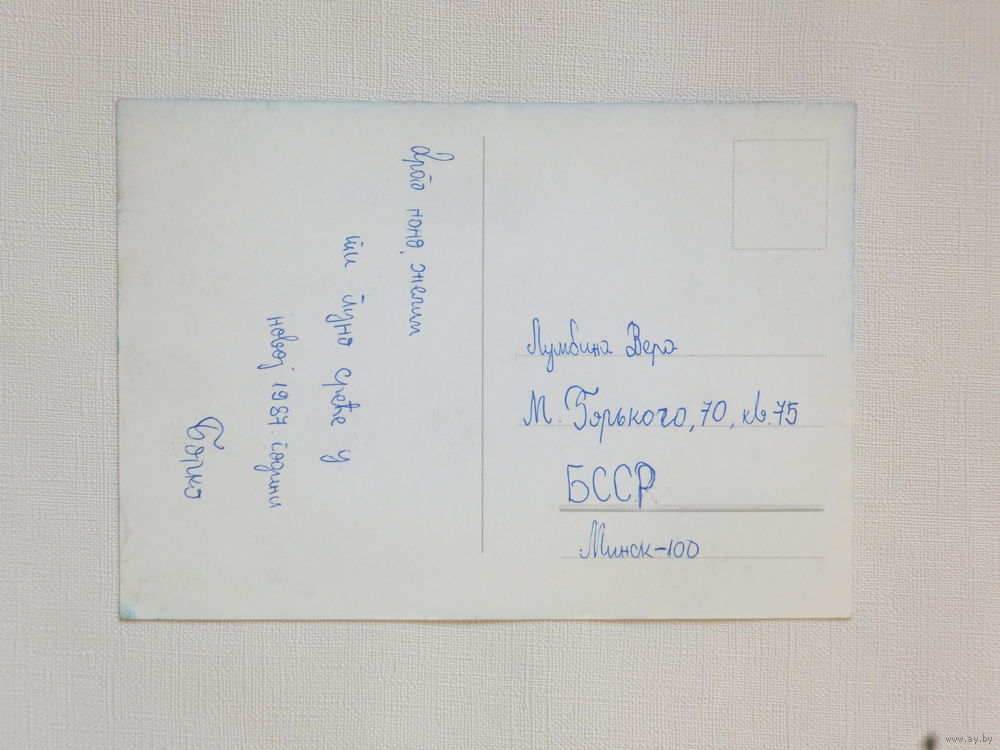 желим
ти пуно среће у
новој 1987. години
Бочко
Лумбина Вера
М. Горького, 70, кв. 75
БССР
Минск-100
www.ay.by